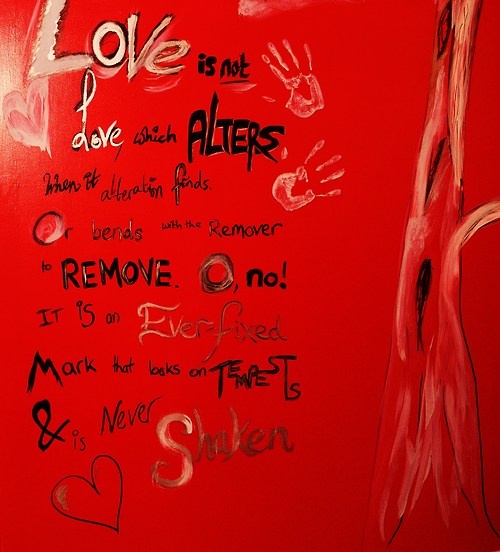 Love is not
Love, which ALTERS
When it alteration finds.
Or bends with the Remover
to REMOVE. O, no!
IT is an Ever-fixed
Mark that looks on TEMPESTS
& is Never Shaken